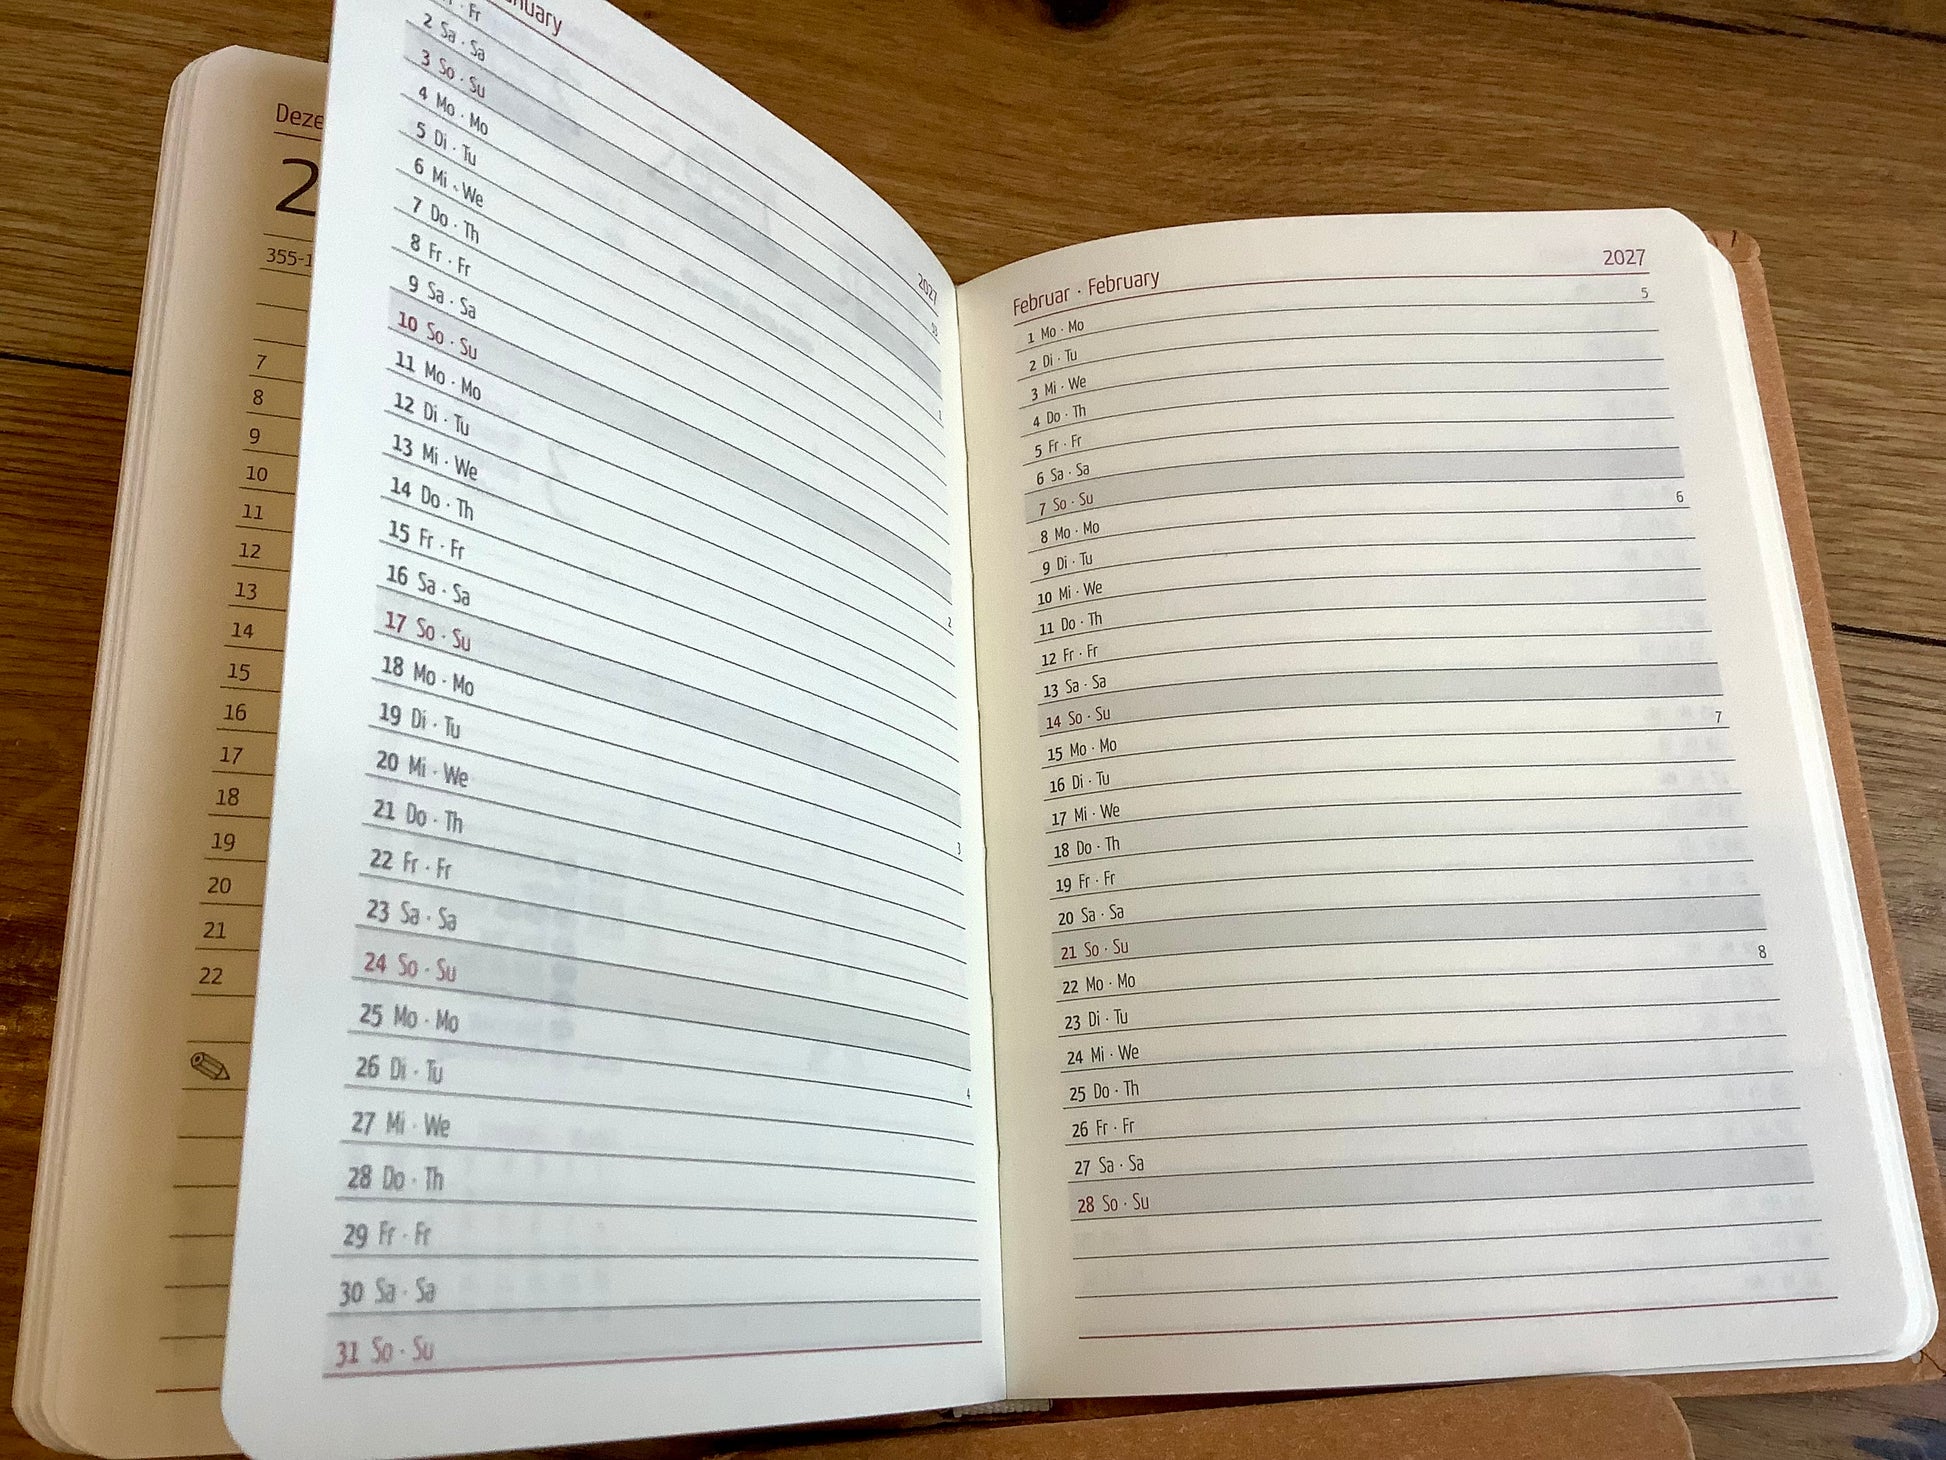 Deze
2
355-1
7
8
9
10
11
12
13
14
15
16
17
18
19
20
21
22
2027
Fr
53
2 Sa · Sa
3 So · Su
4 Mo · Mo
1
5 Di · Tu
6 Mi · We
7 Do · Th
8 Fr · Fr
9 Sa · Sa
10 So · Su
11 Mo · Mo
2
12 Di · Tu
13 Mi · We
14 Do · Th
15 Fr · Fr
16 Sa · Sa
17 So · Su
18 Mo · Mo
3
19 Di · Tu
20 Mi · We
21 Do · Th
22 Fr · Fr
23 Sa · Sa
24 So · Su
25 Mo · Mo
4
26 Di · Tu
27 Mi · We
28 Do · Th
29 Fr · Fr
30 Sa · Sa
31 So · Su
Februar · February 2027
1 Mo · Mo 5
2 Di · Tu
3 Mi · We
4 Do · Th
5 Fr · Fr
6 Sa · Sa
7 So · Su
8 Mo · Mo 6
9 Di · Tu
10 Mi · We
11 Do · Th
12 Fr · Fr
13 Sa · Sa
14 So · Su
15 Mo · Mo 7
16 Di · Tu
17 Mi · We
18 Do · Th
19 Fr · Fr
20 Sa · Sa
21 So · Su
22 Mo · Mo 8
23 Di · Tu
24 Mi · We
25 Do · Th
26 Fr · Fr
27 Sa · Sa
28 So · Su